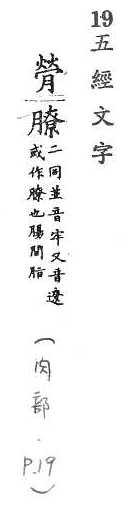 19五經文字
膋膫
二同並音牢又音遼
或作膫也腸間脂
（肉部．P.19）